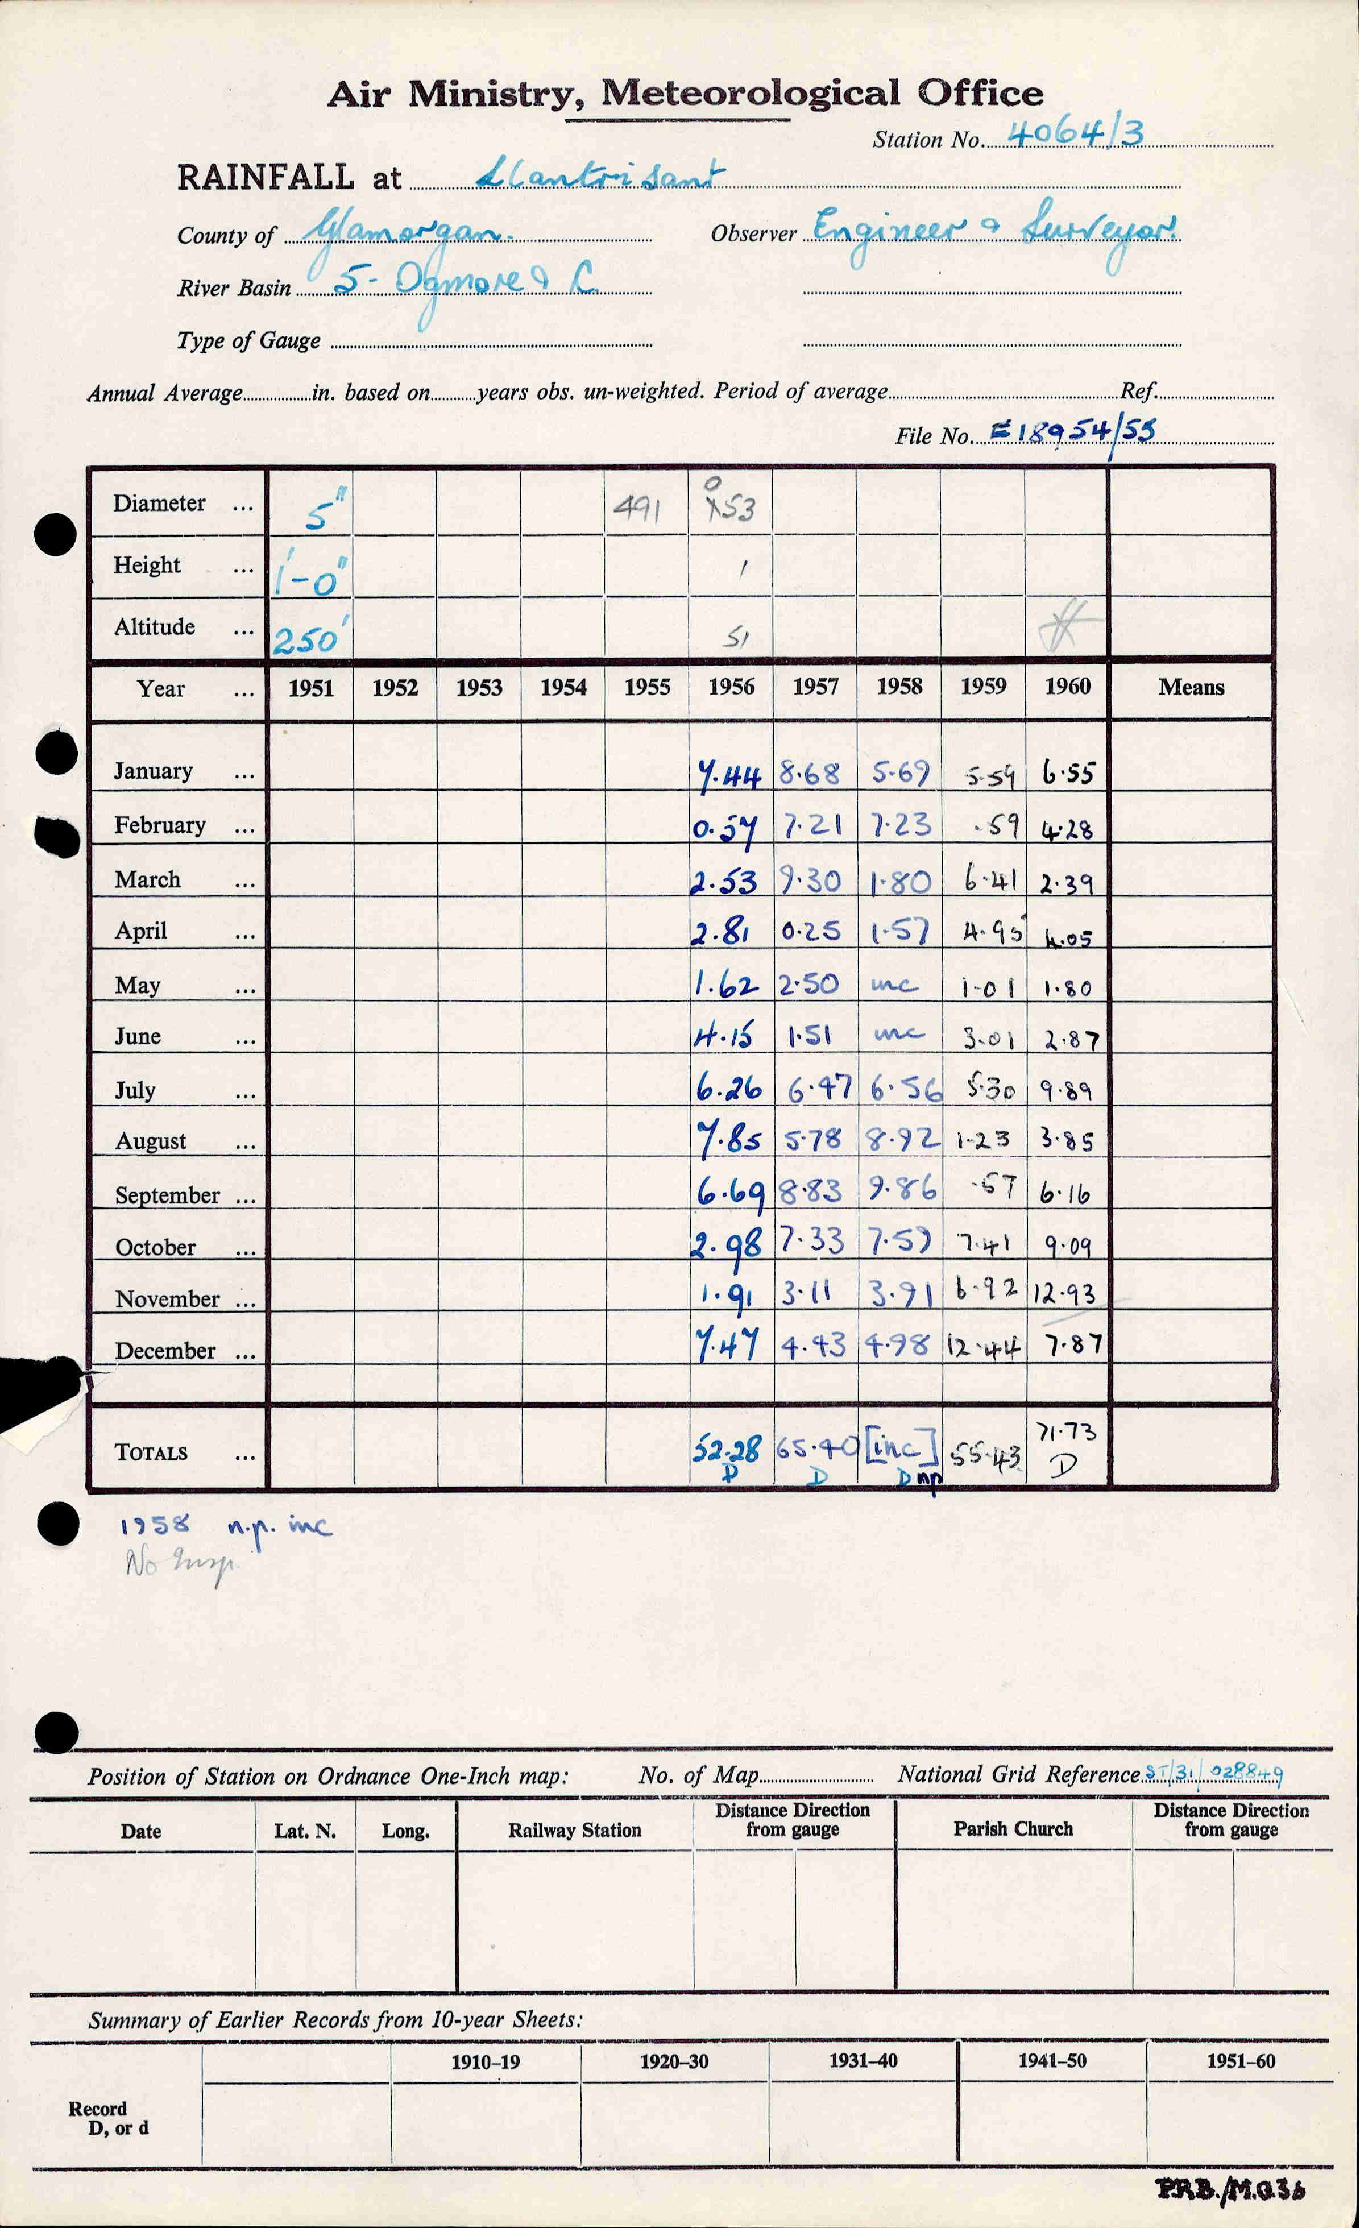 Air Ministry, Meteorological Office
Station No. 4064/3
RAINFALL at Llantrisant
County of Glamorgan. Observer Engineer & Surveyor.
River Basin 5 - Ogmore & C.
Type of Gauge
Annual Average in. based on years obs. un-weighted. Period of average Ref.
File No. E18954/55
Diameter ... 5" 491 053
Height ... 1'-0" 1
Altitude ... 250' 51
Year ... 1951 1952 1953 1954 1955 1956 1957 1958 1959 1960 Means
January ... 7.44 8.68 5.69 5.59 6.55
February ... 0.57 7.21 7.23 .59 4.28
March ... 2.53 9.30 1.80 6.41 2.39
April ... 2.81 0.25 1.57 4.95 4.05
May ... 1.62 2.50 inc 1.01 1.80
June ... 4.15 1.51 inc 3.01 2.87
July ... 6.26 6.47 6.56 5.30 9.89
August ... 7.85 5.78 8.92 1.23 3.85
September ... 6.69 8.83 9.86 .57 6.16
October ... 2.98 7.33 7.59 7.41 9.09
November ... 1.91 3.11 3.91 6.92 12.93
December ... 7.47 4.43 4.98 12.44 7.87
TOTALS ... 52.28 65.40 [inc] 55.43 71.73
D D D np D
1958 n.p. inc
No Insp.
Position of Station on Ordnance One-Inch map: No. of Map National Grid Reference ST/31/028849
Date Lat. N. Long. Railway Station Distance Direction from gauge Parish Church Distance Direction from gauge
Summary of Earlier Records from 10-year Sheets:
1910–19 1920–30 1931–40 1941–50 1951–60
Record
D, or d
P.R.B./M.O.36